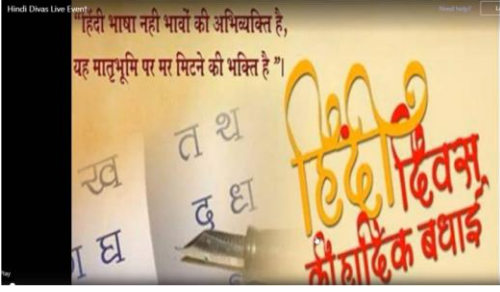 Hindi Divas Live Event
Need help?
“हिंदी भाषा नही भावों की अभिव्यक्ति है,
यह मातृभूमि पर मर मिटने की भक्ति है ”।
त थ
ख
द ध
ग घ
हिंदी दिवस
की हार्दिक बधाई
Play